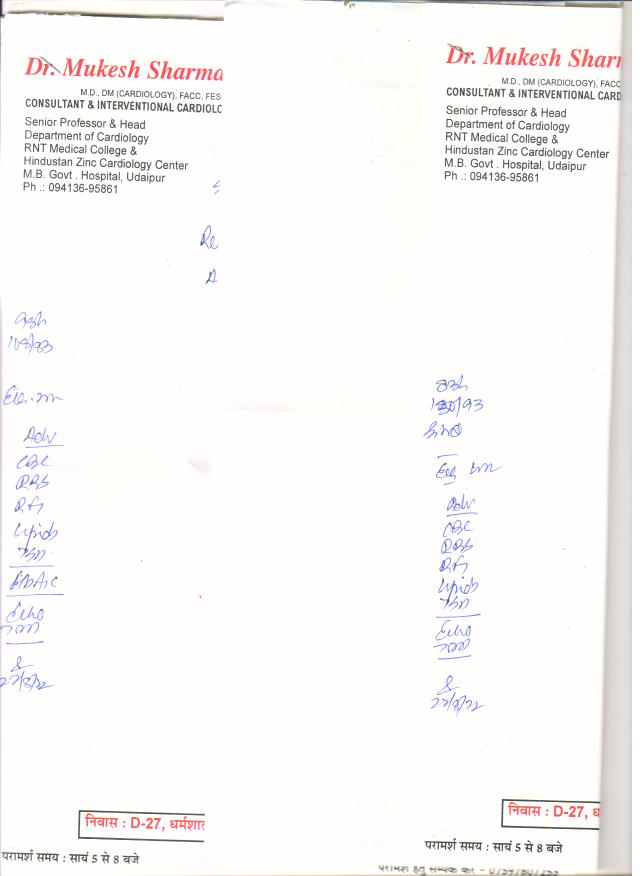 Dr. Mukesh Sharma
M.D., DM (CARDIOLOGY), FACC, FES
CONSULTANT & INTERVENTIONAL CARDIOLO
Senior Professor & Head
Department of Cardiology
RNT Medical College &
Hindustan Zinc Cardiology Center
M.B. Govt . Hospital, Udaipur
Ph .: 094136-95861
Re
A
Adv
CBC
RBS
RFT
Lipids
TSH
HbA1c
Echo
TMT
27/8/22
निवास : D-27, धर्मशाल
परामर्श समय : सायं 5 से 8 बजे
Dr. Mukesh Sharm
M.D., DM (CARDIOLOGY), FACC
CONSULTANT & INTERVENTIONAL CARD
Senior Professor & Head
Department of Cardiology
RNT Medical College &
Hindustan Zinc Cardiology Center
M.B. Govt . Hospital, Udaipur
Ph .: 094136-95861
Adv
CBC
RBS
RFT
Lipids
TSH
Echo
TMT
27/8/22
निवास : D-27, ध
परामर्श समय : सायं 5 से 8 बजे